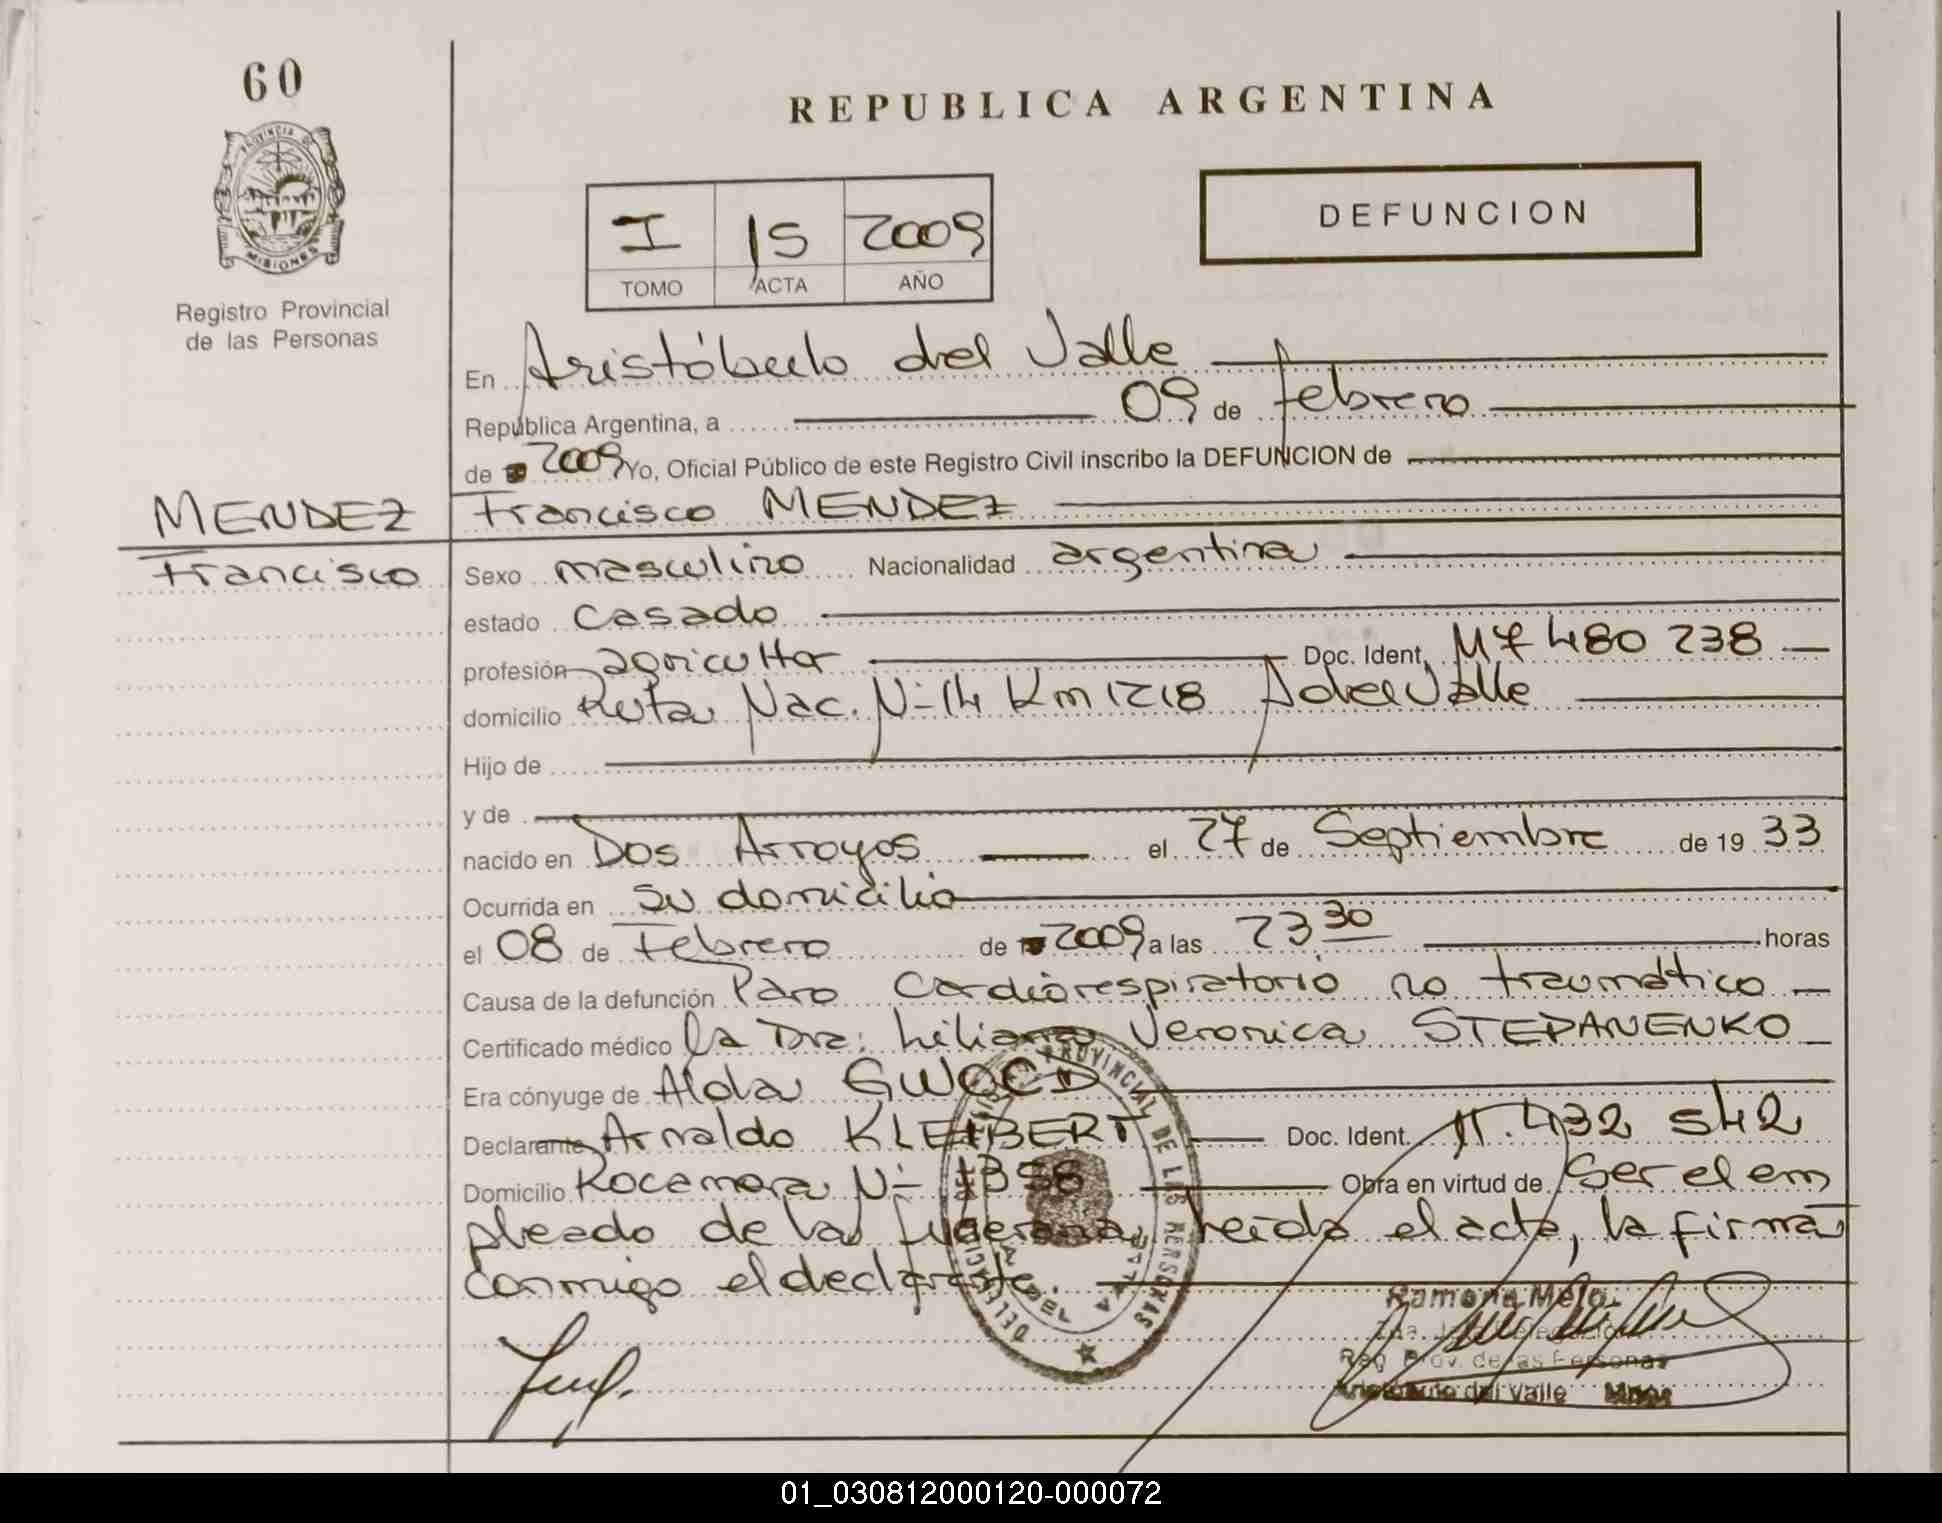 60
REPUBLICA ARGENTINA
PROVINCIA DE
MISIONES
Registro Provincial
de las Personas
I 15 2009
TOMO ACTA AÑO
DEFUNCION
En Aristóbulo del Valle
República Argentina, a 09 de febrero
de 2009 Yo, Oficial Público de este Registro Civil inscribo la DEFUNCION de
MENDEZ Francisco MENDEZ
Francisco Sexo masculino Nacionalidad argentina
estado casado
profesión agricultor Doc. Ident. M7 480 238
domicilio Ruta Nac. Nº 14 Km 1218 A del Valle
Hijo de
y de
nacido en Dos Arroyos el 27 de Septiembre de 19 33
Ocurrida en su domicilio
el 08 de Febrero de 2009 a las 23 30 horas
Causa de la defunción Paro Cardiorespiratorio no traumático
Certificado médico la Dra: Liliana Veronica STEPANENKO
Era cónyuge de Alda GWOCD
Declarante Arnaldo KLEIBERT Doc. Ident. 11.432 542
Domicilio Rocamora Nº 1356 Obra en virtud de ser el em
pleado de la funeraria, leída el acta, la firma
conmigo el declarante.
PROVINCIAL DE LAS PERSONAS
Ramona Melo
Reg. Prov. de las Personas
Aristóbulo del Valle Mnes
01_030812000120-000072